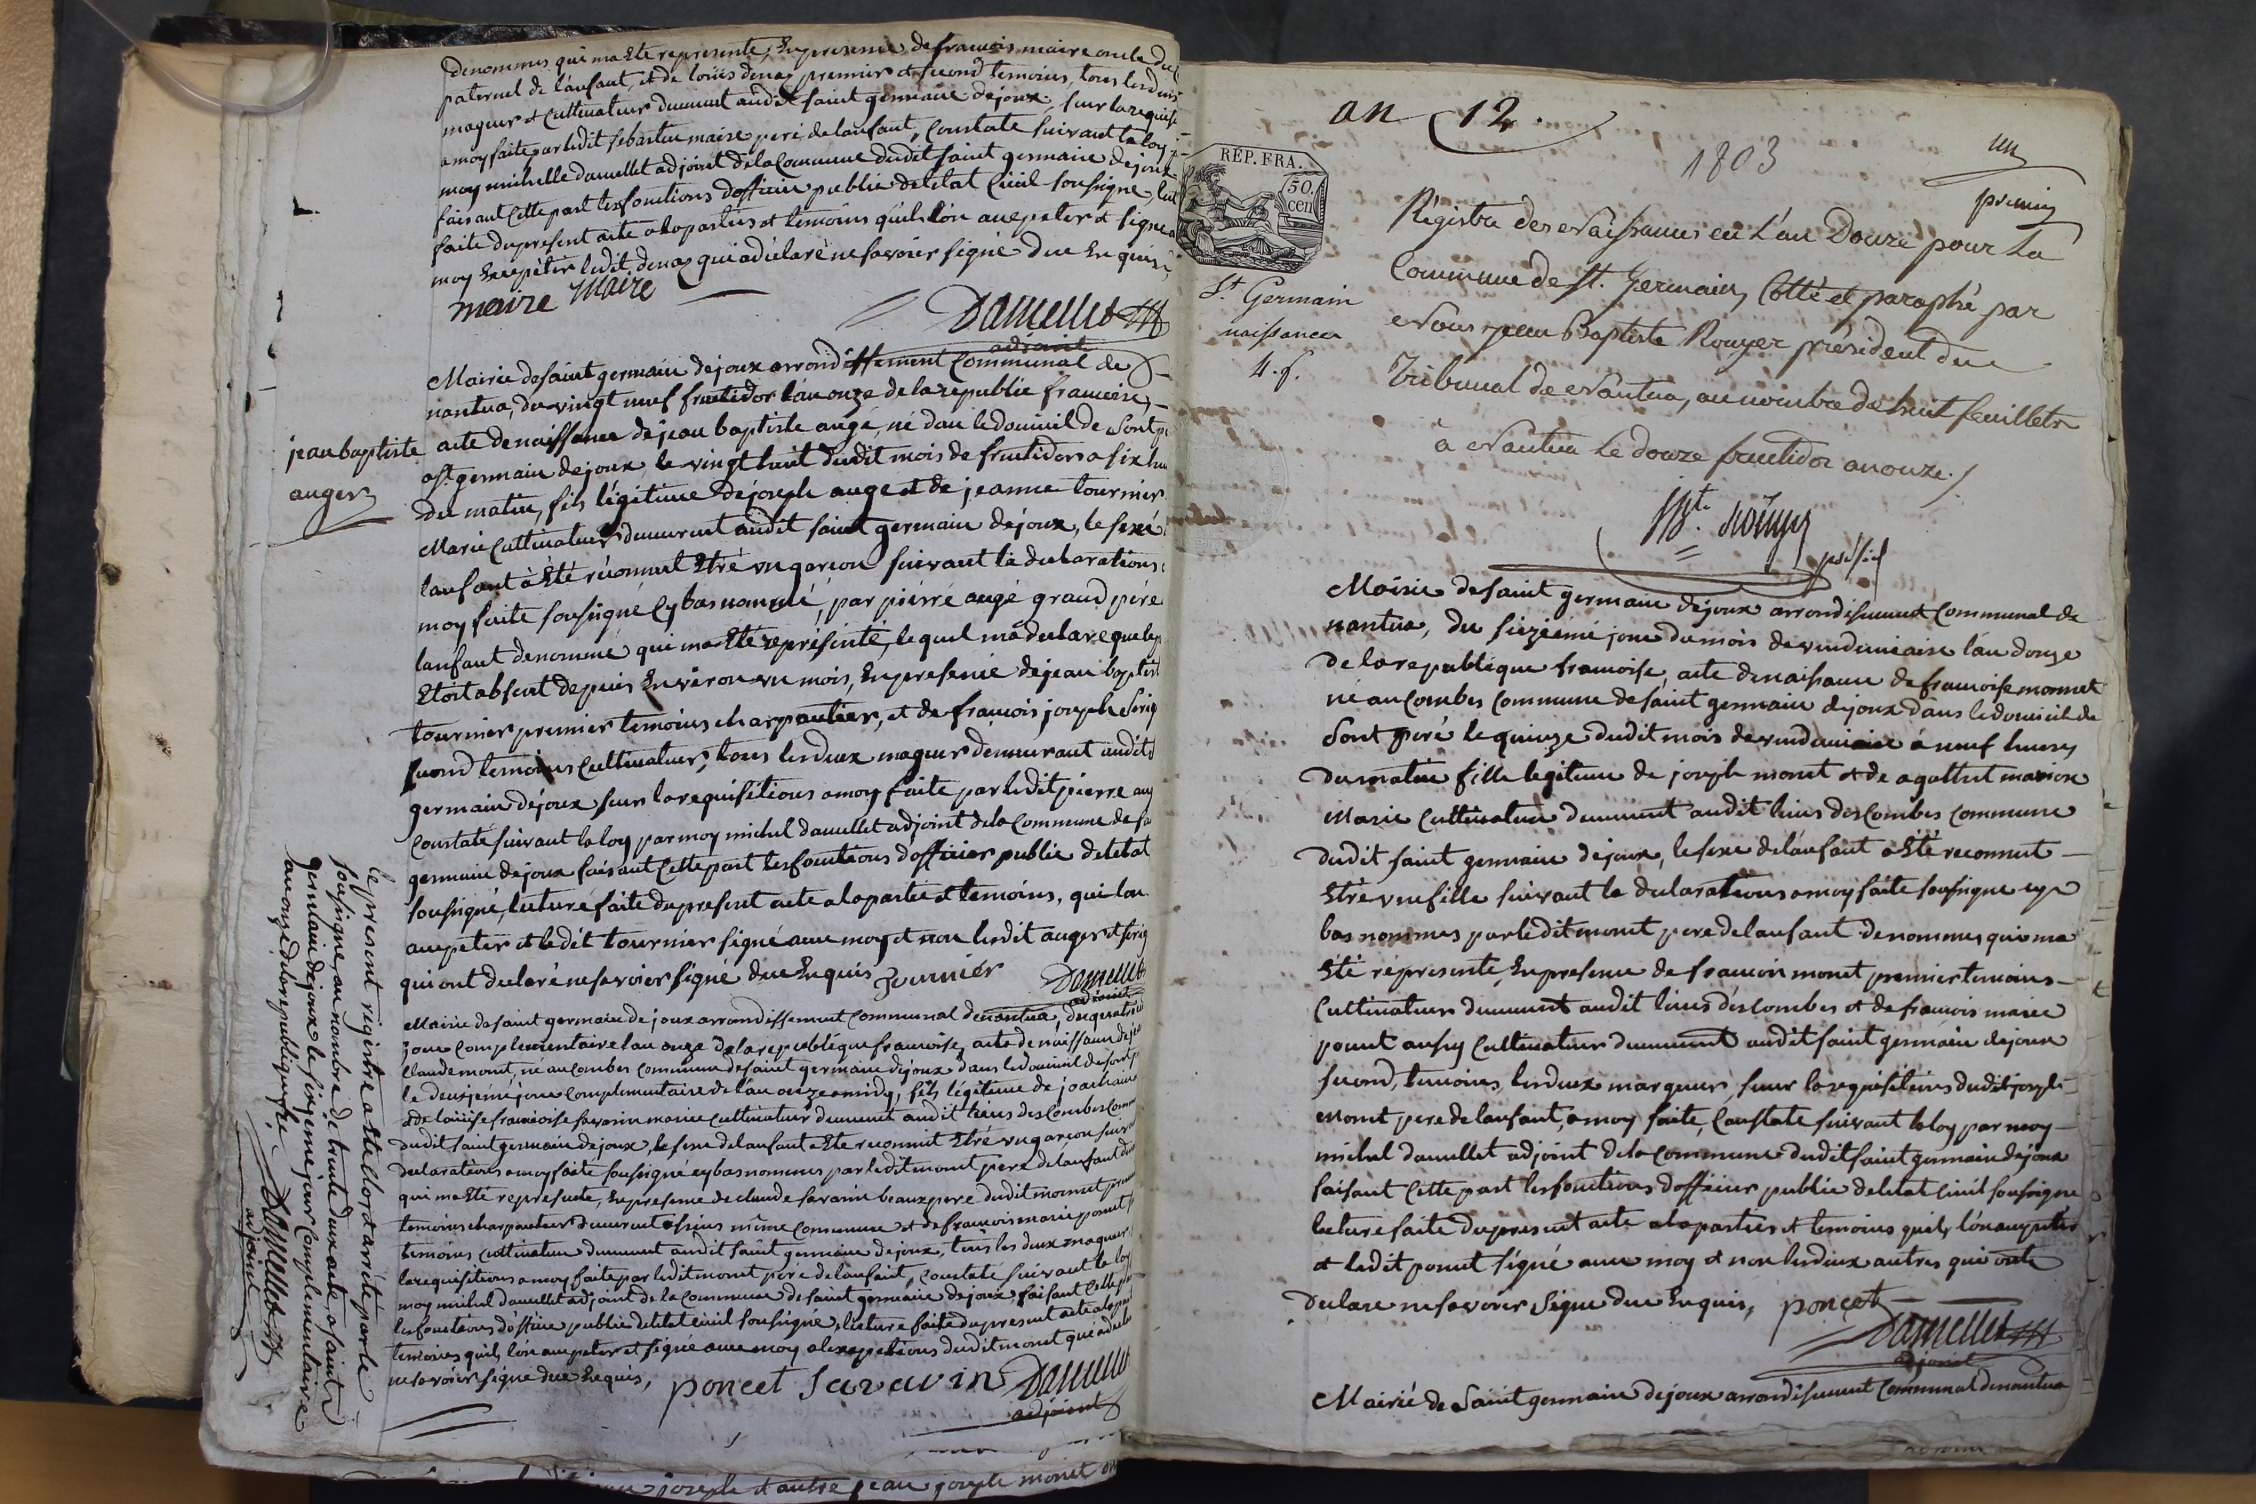 denommés qui ma Eté representé, En presence de francois maire oncle du
paternel de l'anfant, et de loüis dena premier et second temoins, tous les deux
mageur et Cultivateur demeurant audit saint germain dejoux, sur la requisi
a moy faite par ledit sebastien maire peré de lanfant, Constaté suivant la loy
moy michelle damellet adjoint de la Commune dudit saint germain dejoux
faisant Cette part les fonctions dofficier public de letat Civil sousigné, lect
faite du present acte a la parties et temoins quils lón ancepeter et signé a
moy Excepéter ledit dena qui a déclaré ne savoier signé due En quise,
maire Maire
Damellet
adjoint
Mairie de saint germain dejoux arrondissement Communal de
nantua, du vingt neuf fructidor l'án onze de la republic francoise,
jean baptiste
auger
acte de naissance de jean baptiste augé, né dans le domicil de Sont p
a st. germain dejoux, le vingt huit dudit mois de fructidors a six heu
du matin, fils légitime de joseph auge et de jeanne tournier
Marie Cultivateur demeurent audit saint germain dejoux, le sexé
lanfant à Eté réconnut Etré un garcon suivant la declarations
moy faite sousigné Cy bas nommé, par piérré augé grand péré
lanfant denommé qui ma Eté représénté, lequel má declaré que le p
Etoit absent depuis En viron un mois, En presence de jean baptist
tournier premier temoins charpantier, et de francois joseph Serig
second temoins Cultivateur, tous les deux mageur demeurant audit s
germain dejoux sur la requisitions a moy faite par ledit pierre aug
Constaté suivant la loy par moy michel damellet adjoint de la Commune de sa
germain dejoux faisant Cette part les fonctions dofficier public de letat
sousigné, lecture faite du present acte a la partie et temoins, qui lon
ancepeter et ledit tournier signé avec moy et non lesdit auger et serig
qui ont declaré ne savoier signé due En quis Tournier Damellet
adjoint
Mairie de saint germain de joux arrondissement Communal de nantua, du quatrié
jour complementaire l'an onze de la republique francoise, acte de naissance de je
Claude monet, né au Combes Commune de saint germain dejoux dans le domicil de sont p
le deuxiémé jour Complementaire de l'án onze a midy, fils légitime de joachim
et de loüise francoise savarin mariee Cultivateur demeurent audit lieus des Combes Comm
dudit saint germain de joux, le sexe de lanfant a Eté reconnut Etré un garcon suiv
declarations a moy faite sousigné cy bas nommés par ledit monet pere de lanfant den
qui ma Eté representé, En presence de claude savarin beaux pere dudit monnet prem
temoins charpantier demeurent a sieus méme Commune et de francois marie poncet
temoins Cultivateur demeurent audit saint germain dejoux, tous les deux mageur
la requisitions a moy faite par ledit monet péré de lanfant, Constaté suivant la loy
moy michel damellet adjoint de la Commune de saint germain dejoux faisant Cette p
les fonctions dófficier public de letat Civil sousigné, lecture faite du present acte a la par
temoins quils, lón ancepeter et signé avec moy a lexceptions dudit monet qui a decla
ne savoier signé due Enquis, poncet Savarin Damellet
adjoint
le present régistre a Eté Clos et arrété par le
sousigné, au nombre de trente deux acte, a saint
germain dejoux le sixieme jour Complementaire
lan onze de la republique fse.
Damellet
adjoint
joseph et autre jean joseph monet
an 12.
1803
un
premier
RÉP. FRA.
50.
cen
St Germain
naissances
4. f.
Régistre des Naissances en L'an Douze pour La
Commune de St. Germain, Cotté et paraphé par
Nous jean Baptiste Rouyer président du
Tribunal de Nantua, au nombre de huit feuillets
à Nantua Le douze fructidor an onze./
JBte. Roüyer
présid
Mairie de saint germain dejoux arrondisement Communal de
nantua, du siéziémé jour du mois de vendemiaire l'án donze
de la republique francoise, acte de naisance de francoise monnet
né au Combes Commune de saint germain dejoux dans le domicil de
Sont péré le quinze dudit mois de vendemiaire á neuf heures
du matin fille legitime de joseph monet et de agathe marion
Marie Cultivateur demeurent audit lieus des Combes Commune
dudit saint germain dejoux, le sexe de lánfant a Eté reconnut
Etré une fille suivant la declarations a moy faite sousigne cy
bas nommés par ledit monet pere de lanfant denommés qui ma
Eté répresenté, En presence de francois monet premier temoins
Cultivateur demeurent audit lieus des Combes et de francois marie
poncet aussy Cultivateur demeurent audit saint germain dejoux
second, temoins, les deux margeur, sur la requisitions dudit joseph
Monet pere de lanfant, a moy faite, Constaté suivant la loy par moy
michel damellet adjoint de la Commune dudit saint germain dejoux
faisant Cette part les fonctions dofficier public de letat Civil sousigne
lecture faite du present acte a la parties et temoins quils, lón ancepeter
et ledit poncet signé avec moy et non les deux autres qui onte
declare ne savoier Signe due Enquis, poncet
Damellet
adjoint
Mairié de Saint germain dejoux arrondisement Communal de nantua